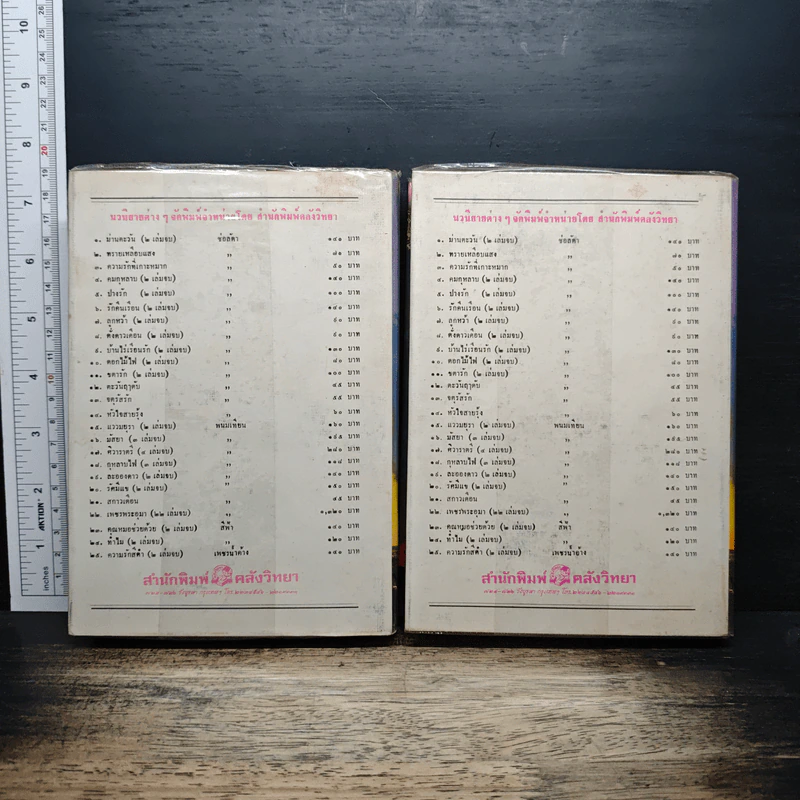 นวนิยายต่าง ๆ จัดพิมพ์จำหน่ายโดย สำนักพิมพ์คลังวิทยา
๑. ม่านตะวัน (๒ เล่มจบ) ช่อลัดา ๑๔๑ บาท
๒. พรายเหลือบแสง ,, ๗๑ บาท
๓. ความรักที่เกาะหมาก ,, ๕๐ บาท
๔. คมกุหลาบ (๒ เล่มจบ) ,, ๑๕๑ บาท
๕. ปางรัก (๒ เล่มจบ) ,, ๑๐๐ บาท
๖. รักคืนเรือน (๒ เล่มจบ) ,, ๑๔๐ บาท
๗. ลูกหว้า (๒ เล่มจบ) ,, ๙๐ บาท
๘. ตั้งดาวเดือน (๒ เล่มจบ) ,, ๙๐ บาท
๙. บ้านไร่เรือนรัก (๒ เล่มจบ) ,, ๑๓๐ บาท
๑๐. ดอกไม้ไฟ (๒ เล่มจบ) ,, ๘๐ บาท
๑๑. ชดารัก (๒ เล่มจบ) ,, ๑๐๐ บาท
๑๒. ตะวันฤๅดับ ,, ๔๕ บาท
๑๓. จตุรัสรัก ,, ๕๕ บาท
๑๔. หัวใจสายรุ้ง ,, ๖๐ บาท
๑๕. แววมยุรา (๒ เล่มจบ) พนมเทียน ๑๖๐ บาท
๑๖. มัสยา (๓ เล่มจบ) ,, ๑๙๕ บาท
๑๗. ศิวาราตรี (๔ เล่มจบ) ,, ๒๘๐ บาท
๑๘. กุหลาบไฟ (๓ เล่มจบ) ,, ๑๑๘ บาท
๑๙. ละอองดาว (๒ เล่มจบ) ,, ๑๔๐ บาท
๒๐. รัศมีแข (๒ เล่มจบ) ,, ๑๕๐ บาท
๒๑. สกาวเดือน ,, ๔๕ บาท
๒๒. เพชรพระอุมา (๒๒ เล่มจบ) ,, ๑,๓๒๐ บาท
๒๓. คุณหมอช่วยด้วย (๒ เล่มจบ) สีฟ้า ๑๔๐ บาท
๒๔. ทำไม (๒ เล่มจบ) ,, ๑๒๐ บาท
๒๕. ความรักสีดำ (๒ เล่มจบ) เพชรน้ำค้าง ๑๔๑ บาท
สำนักพิมพ์ คลังวิทยา
นวนิยายต่าง ๆ จัดพิมพ์จำหน่ายโดย สำนักพิมพ์คลังวิทยา
๑. ม่านตะวัน (๒ เล่มจบ) ช่อลัดา ๑๔๑ บาท
๒. พรายเหลือบแสง ,, ๗๑ บาท
๓. ความรักที่เกาะหมาก ,, ๕๐ บาท
๔. คมกุหลาบ (๒ เล่มจบ) ,, ๑๕๑ บาท
๕. ปางรัก (๒ เล่มจบ) ,, ๑๐๐ บาท
๖. รักคืนเรือน (๒ เล่มจบ) ,, ๑๔๐ บาท
๗. ลูกหว้า (๒ เล่มจบ) ,, ๙๐ บาท
๘. ตั้งดาวเดือน (๒ เล่มจบ) ,, ๙๐ บาท
๙. บ้านไร่เรือนรัก (๒ เล่มจบ) ,, ๑๓๐ บาท
๑๐. ดอกไม้ไฟ (๒ เล่มจบ) ,, ๘๐ บาท
๑๑. ชดารัก (๒ เล่มจบ) ,, ๑๐๐ บาท
๑๒. ตะวันฤๅดับ ,, ๔๕ บาท
๑๓. จตุรัสรัก ,, ๕๕ บาท
๑๔. หัวใจสายรุ้ง ,, ๖๐ บาท
๑๕. แววมยุรา (๒ เล่มจบ) พนมเทียน ๑๖๐ บาท
๑๖. มัสยา (๓ เล่มจบ) ,, ๑๙๕ บาท
๑๗. ศิวาราตรี (๔ เล่มจบ) ,, ๒๘๐ บาท
๑๘. กุหลาบไฟ (๓ เล่มจบ) ,, ๑๑๘ บาท
๑๙. ละอองดาว (๒ เล่มจบ) ,, ๑๔๐ บาท
๒๐. รัศมีแข (๒ เล่มจบ) ,, ๑๕๐ บาท
๒๑. สกาวเดือน ,, ๔๕ บาท
๒๒. เพชรพระอุมา (๒๒ เล่มจบ) ,, ๑,๓๒๐ บาท
๒๓. คุณหมอช่วยด้วย (๒ เล่มจบ) สีฟ้า ๑๔๐ บาท
๒๔. ทำไม (๒ เล่มจบ) ,, ๑๒๐ บาท
๒๕. ความรักสีดำ (๒ เล่มจบ) เพชรน้ำค้าง ๑๔๑ บาท
สำนักพิมพ์ คลังวิทยา
10
9
8
7
6
5
4
3
2
1
inches
AKTION